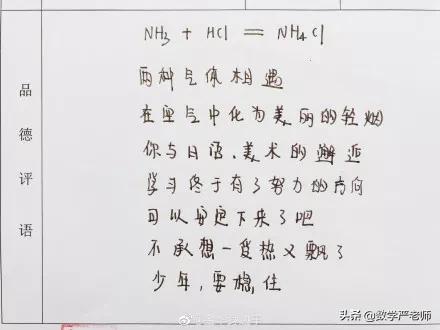 NH3 + HCl = NH4Cl
两种气体相遇
在空气中化为美丽的轻烟
你与日语、美术的邂逅
学习终于有了努力的方向
可以安定下来了吧
不承想一受热又飘了
少年,要稳住
品德评语
头条 @数学严老师